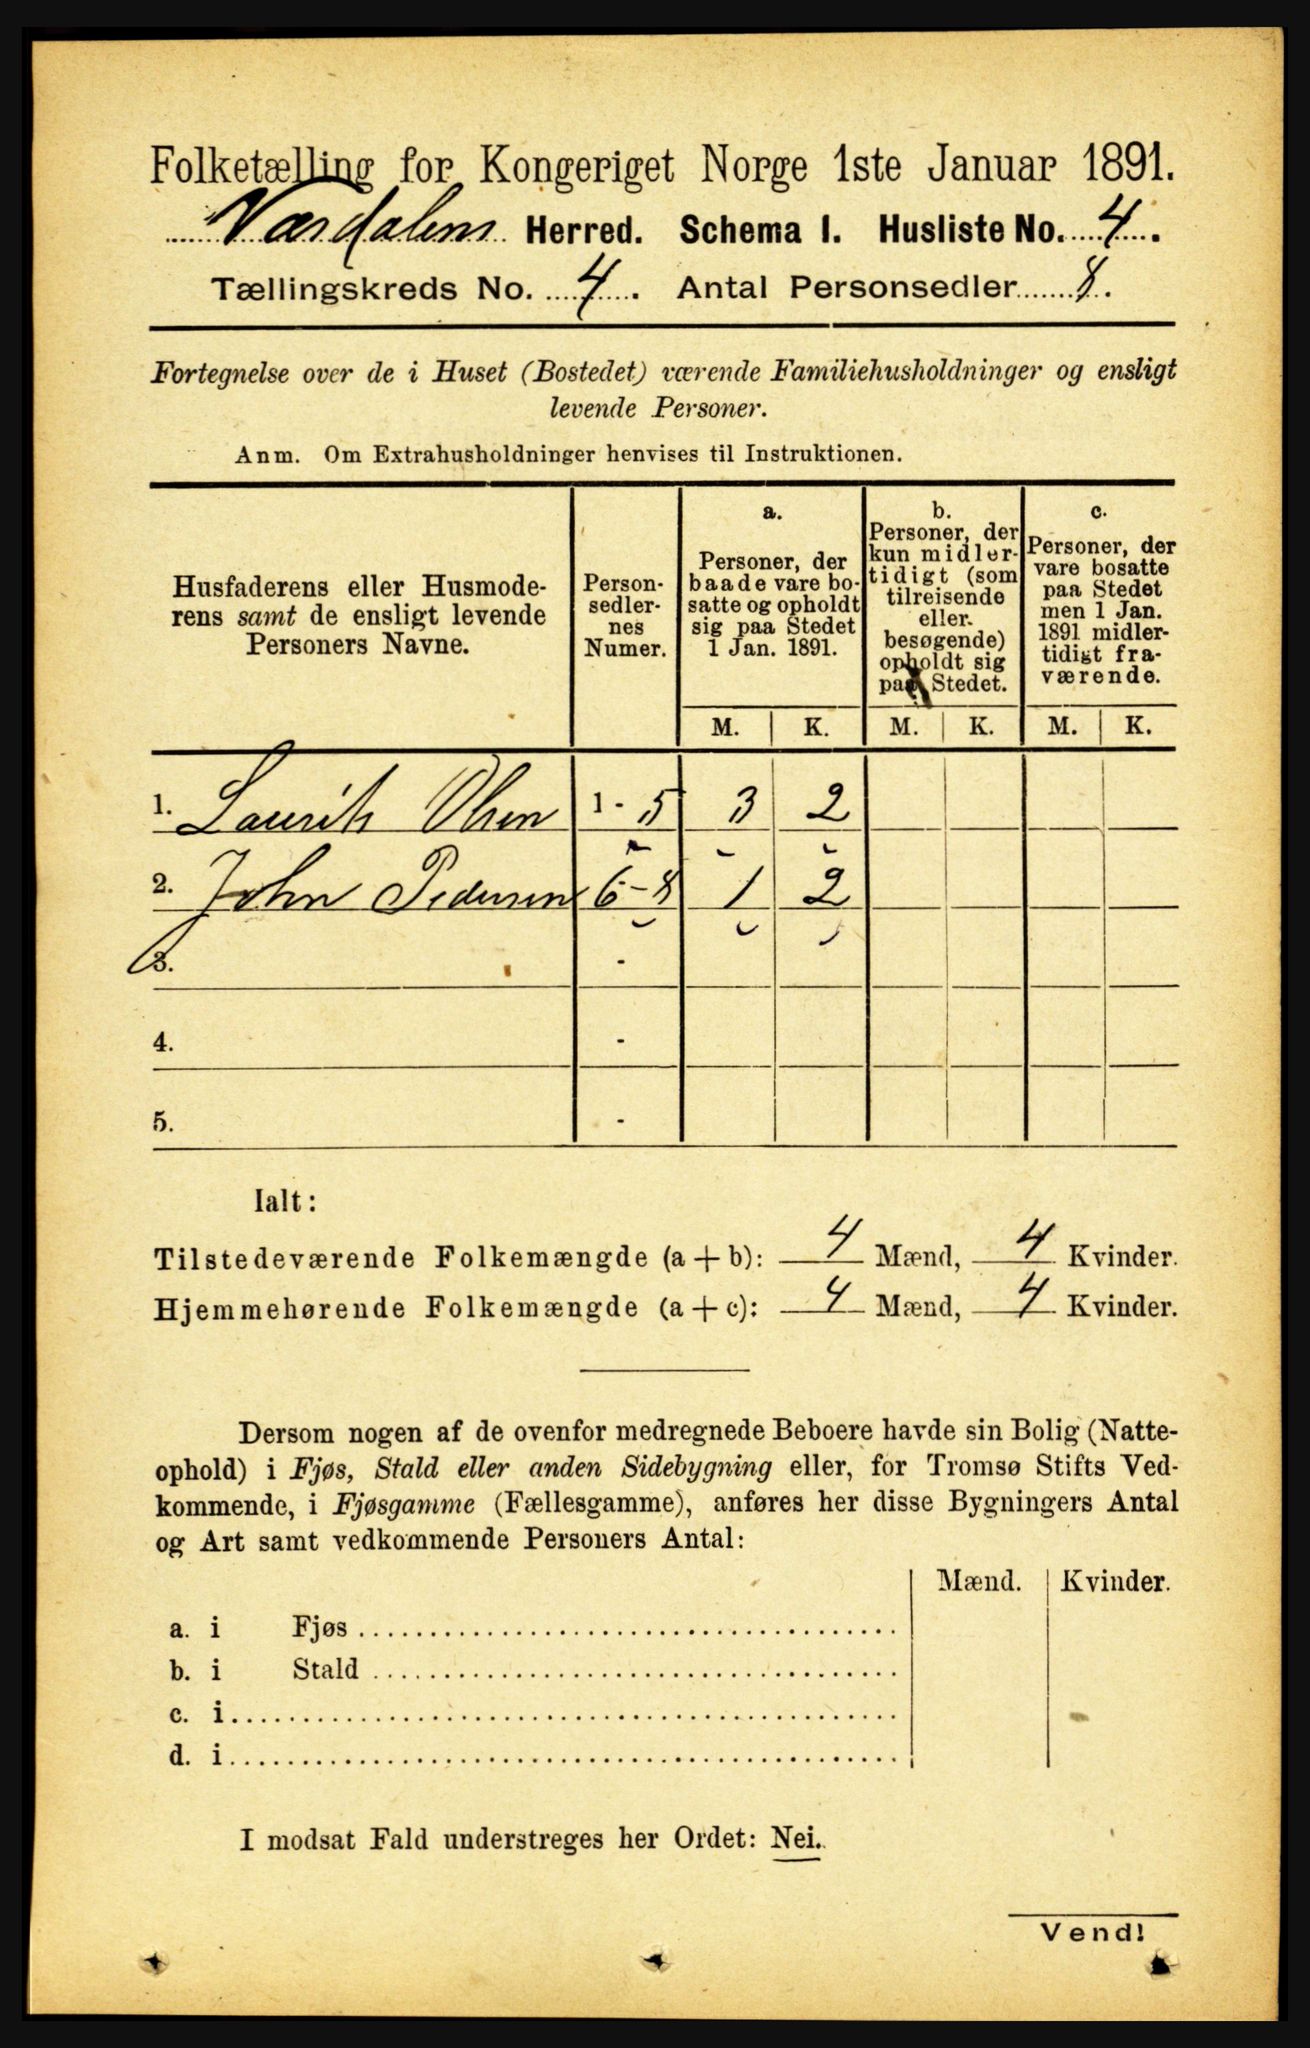 Folketælling for Kongeriget Norge 1ste Januar 1891.
Værdalens Herred. Schema I. Husliste No. 4.
Tællingskreds No. 4. Antal Personsedler 8.
Fortegnelse over de i Huset (Bostedet) værende Familiehusholdninger og ensligt
levende Personer.
Anm. Om Extrahusholdninger henvises til Instruktionen.
Husfaderens eller Husmode-
rens samt de ensligt levende
Personers Navne.
Person-
sedler-
nes
Numer.
a.
Personer, der
baade vare bo-
satte og opholdt
sig paa Stedet
1 Jan. 1891.
b.
Personer, der
kun midler-
tidigt (som
tilreisende
eller
besøgende)
opholdt sig
paa Stedet.
c.
Personer, der
vare bosatte
paa Stedet
men 1 Jan.
1891 midler-
tidigt fra-
værende.
M. K. M. K. M. K.
1. Laurits Olsen 1 - 5 3 2
2. John Pedersen 6 - 8 1 2
3. -
4. -
5. -
Ialt:
Tilstedeværende Folkemængde (a + b): 4 Mænd, 4 Kvinder.
Hjemmehørende Folkemængde (a + c): 4 Mænd, 4 Kvinder.
Dersom nogen af de ovenfor medregnede Beboere havde sin Bolig (Natte-
ophold) i Fjøs, Stald eller anden Sidebygning eller, for Tromsø Stifts Ved-
kommende, i Fjøsgamme (Fællesgamme), anføres her disse Bygningers Antal
og Art samt vedkommende Personers Antal:
Mænd. Kvinder.
a. i Fjøs
b. i Stald
c. i
d. i
I modsat Fald understreges her Ordet: Nei.
Vend!